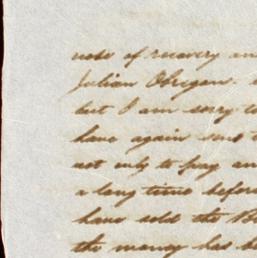 note of recovery an
Julian Obregon.
but I am sorry to
have again sent t
not only to pay an
a long time before
have sold the Bo
the money has be